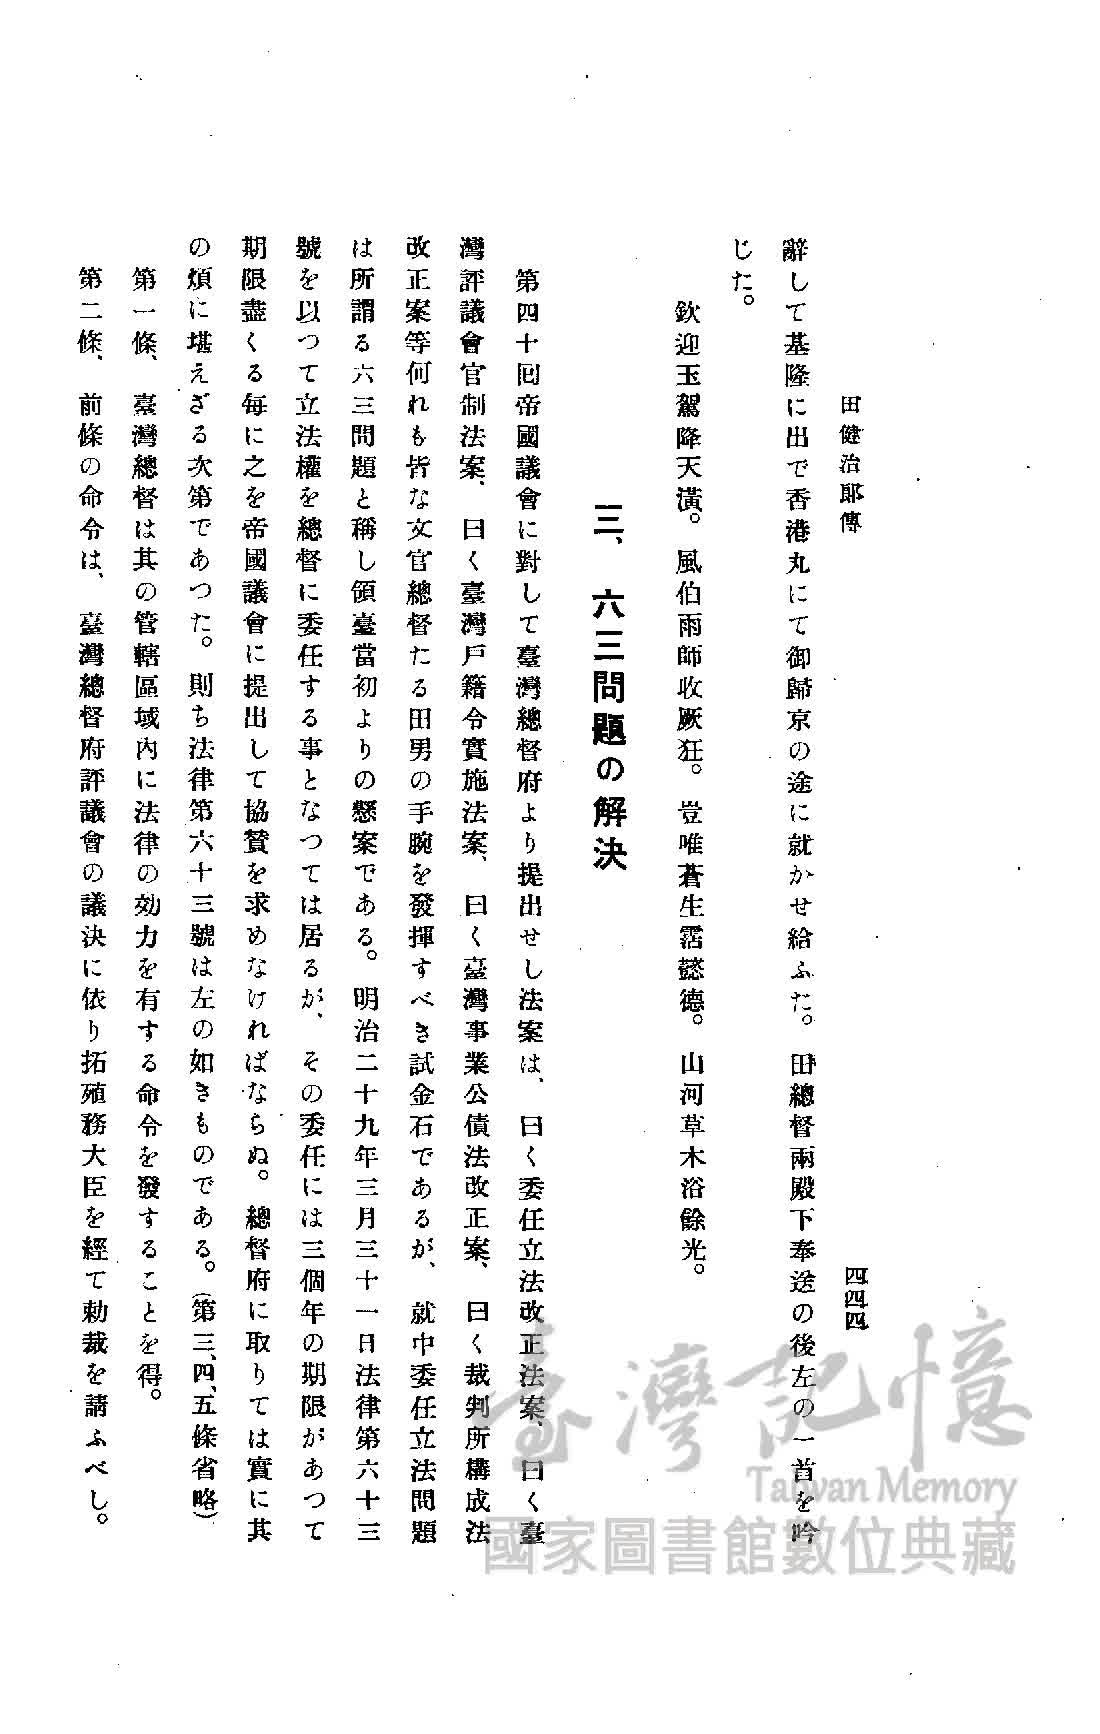 田健治郎傳
四四四
辭して基隆に出で香港丸にて御歸京の途に就かせ給ふた。田總督兩殿下奉送の後左の一首を吟
じた。
欽迎玉駕降天潢。風伯雨師收厥狂。豈唯蒼生霑懿德。山河草木浴餘光。
三、六三問題の解決
第四十回帝國議會に對して臺灣總督府より提出せし法案は、曰く委任立法改正法案、曰く臺
灣評議會官制法案、曰く臺灣戶籍令實施法案、曰く臺灣事業公債法改正案、曰く裁判所構成法
改正案等何れも皆な文官總督たる田男の手腕を發揮すべき試金石であるが、就中委任立法問題
は所謂る六三問題と稱し領臺當初よりの懸案である。明治二十九年三月三十一日法律第六十三
號を以つて立法權を總督に委任する事となつては居るが、その委任には三個年の期限があつて
期限盡くる每に之を帝國議會に提出して協贊を求めなければならぬ。總督府に取りては實に其
の煩に堪えざる次第であつた。則ち法律第六十三號は左の如きものである。（第三、四、五條省略）
第一條、臺灣總督は其の管轄區域內に法律の効力を有する命令を發することを得。
第二條、前條の命令は、臺灣總督府評議會の議決に依り拓殖務大臣を經て勅裁を請ふべし。
臺灣記憶
Taiwan Memory
國家圖書館數位典藏